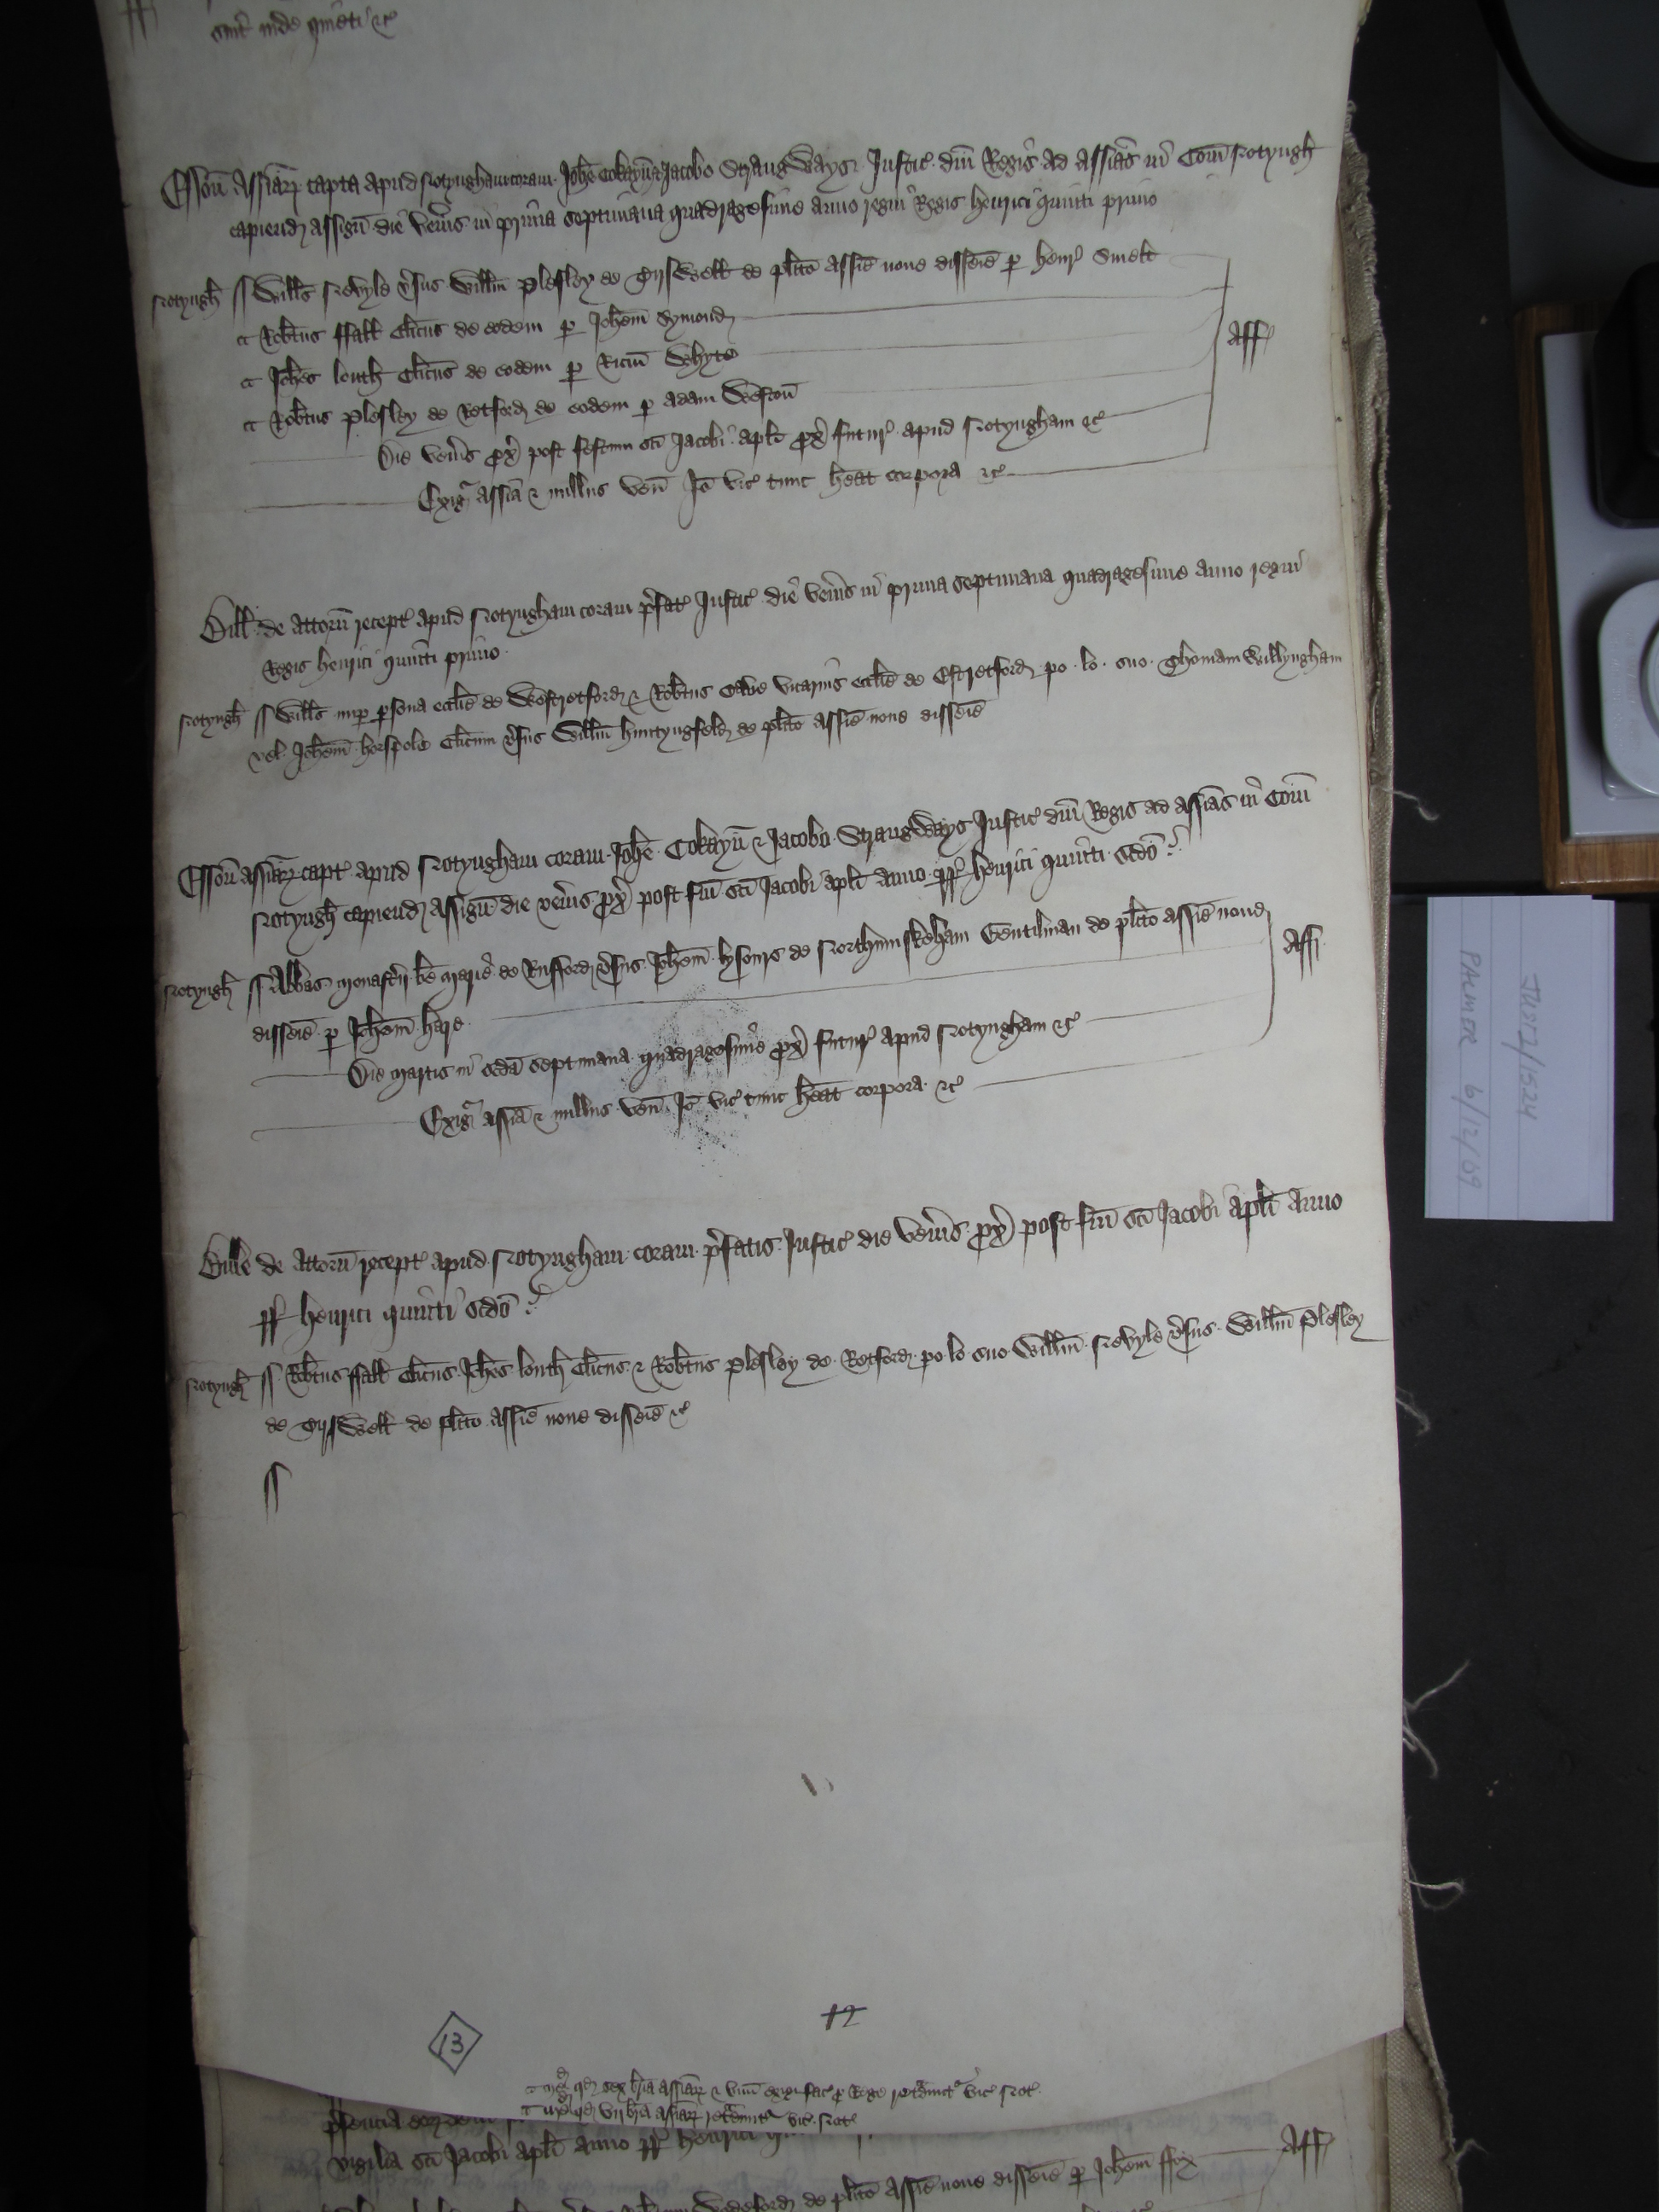 sint inde quieti &c
Esson Assiar capta apud Notyngham coram Johe Cokayn & Jacobo Strangways Justic dni Regis ad Assias in Com Notyngh
capiend assign die Vens in prima septimana quadragesime anno regni Regis Henrici quinti primo
Notyngh ss Wills Nevyle vsus Willm Plesley de Tyswell de plito assise noue disseise p Henr Smelt
& Robtus ffall Clicus de eodem p Johem Symond
& Johes louth Clicus de eodem p Ricm Whyte
& Robtus Plesley de Retford de eodem p Adam Weston Aff
Die Vens px post festum sci Jacobi apli px futur apud Notyngham &c
Exigr assisa & nullus ven Io vic tunc heat corpora &c
Bill de attorn recept apud Notyngham coram pfat Justic die Vens in prima septimana quadragesime anno regni
Regis Henrici quinti primo
Notyngh ss Wills nup psona ecclie de Westretford & Robtus Cave vicarius ecclie de Estretford po lo suo Thomam Willyngham
vel Johem horspole Clicum vsus Willm huntyngfeld de plito assise noue disseise
Esson assiar capt apud Notyngham coram Johe Cokayn & Jacobo Strangways Justic dni Regis ad assias in Com
Notyngh capiend assign die vens px post fm sci Jacobi apli anno rr Henrici quinti scdo
Notyngh ss Abbas monastij be marie de Rufford vsus Johem lysours de Northmuskeham Gentilman de plito assise noue Aff
disseise p Johem hare
Die martis in scda septimana quadragesime px futur apud Notyngham &c
Exigr assia & nullus ven Io vic tunc heat corpora &c
Bille de attorn recept apud Notyngham coram pfatis Justic die Vens px post fm sci Jacobi apli Anno
rr Henrici quinti scdo
Notyngh ss Robtus ffall Clicus Johes louth Clicus & Robtus Plesley de Retford po lo suo Willm Nevyle vsus Willm Plesley
de Tyswell de plito assise noue disseise &c
ss
12
13
vigilia sci Jacobi apli anno rr Henrici
de plito assise noue disseise p Johem ffox Aff
JUST1/1524
PALMER 6/12/09